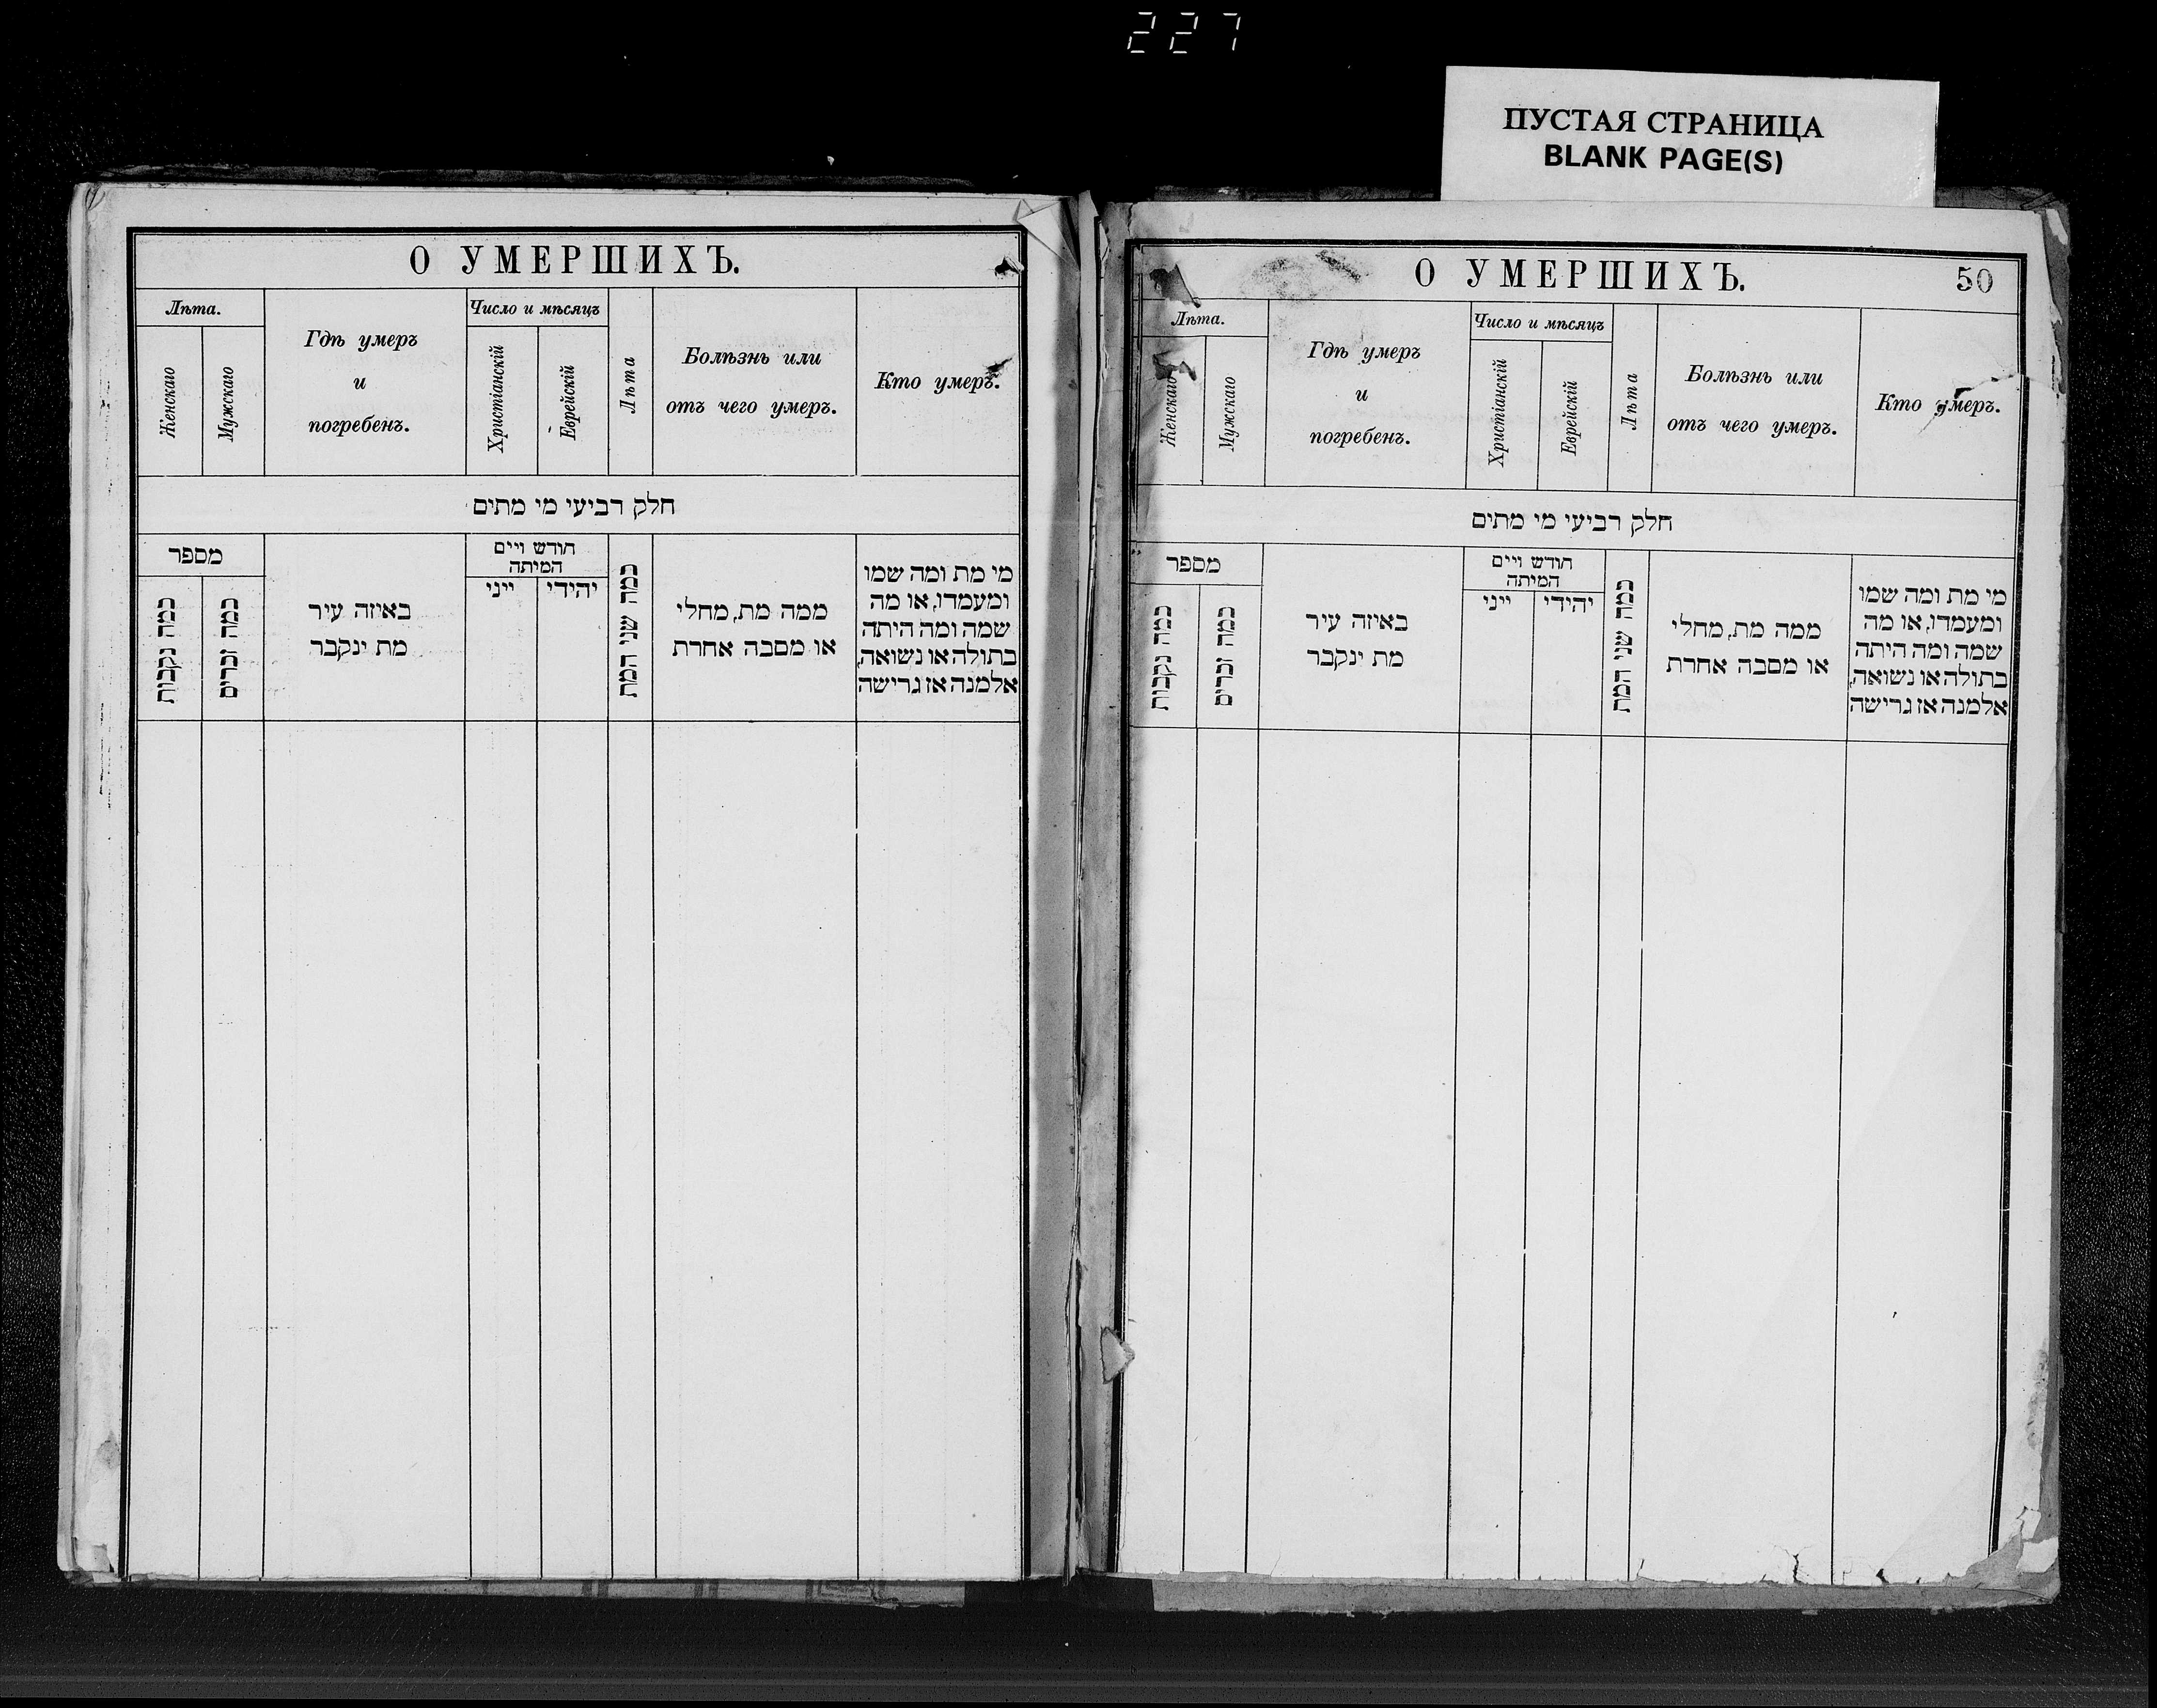 227
ПУСТАЯ СТРАНИЦА
BLANK PAGE(S)
О УМЕРШИХЪ.
Лѣта.
Женскаго
Мужскаго
Гдѣ умеръ
и
погребенъ.
Число и мѣсяцъ
Христіанскій
Еврейскій
Лѣта
Болѣзнь или
отъ чего умеръ.
Кто умеръ.
חלק רביעי מי מתים
מספר
כמה נקבות
כמה זכרים
באיזה עיר
מת ינקבר
חודש ויים
המיתה
ייני
יהידי
כמה שני המת
ממה מת, מחלי
או מסבה אחרת
מי מת ומה שמו
ומעמדו, או מה
שמה ומה היתה
בתולה או נשואה,
אלמנה אז גרישה
О УМЕРШИХЪ.
50
Лѣта.
Женскаго
Мужскаго
Гдѣ умеръ
и
погребенъ.
Число и мѣсяцъ
Христіанскій
Еврейскій
Лѣта
Болѣзнь или
отъ чего умеръ.
Кто умеръ.
חלק רביעי מי מתים
מספר
כמה נקבות
כמה זכרים
באיזה עיר
מת ינקבר
חודש ויים
המיתה
ייני
יהידי
כמה שני המת
ממה מת, מחלי
או מסבה אחרת
מי מת ומה שמו
ומעמדו, או מה
שמה ומה היתה
בתולה או נשואה,
אלמנה אז גרישה